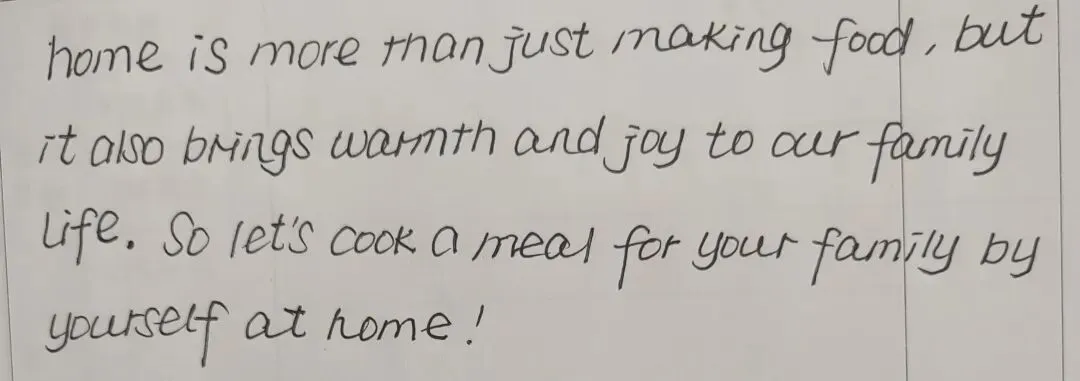 home is more than just making food, but
it also brings warmth and joy to our family
life. So let's cook a meal for your family by
yourself at home!